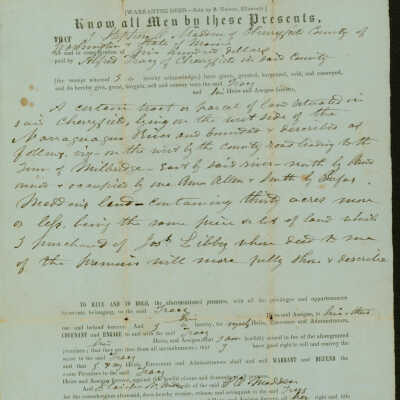 [WARRANTEE DEED.—Sold by
Know all Men by these Presents,
THAT I Stephen Maddom of Cherryfield County of
Washington & State of Maine
in consideration of five hundred dollars
paid by Alfred Tracy of Cherryfield in said County
(the receipt whereof I do hereby acknowledge) have given, granted, bargained, sold, and conveyed,
and do hereby give, grant, bargain, sell and convey unto the said Tracy
and his Heirs and Assigns forever,
A certain part or parcel of land situated in
said Cherryfield, lying on the west side of the
Narraguagus River and bounded & described as
follows, viz- on the west by the county road leading to the
Town of Millbridge- East by said river- north by land
owned & occupied by
land- containing thirty acres more
or less, being the same piece or lot of land which
I purchased of Josh Libbey whose deed to me
of the premises will more fully show & describe
TO HAVE AND TO HOLD, the aforementioned premises, with all the privileges and appurtenances
thereunto belonging, to the said Tracy
Heirs and Assigns, to his & their
use and behoof forever. And I do hereby, for myself Heirs, Executors and Administrators,
COVENANT and ENGAGE to and with the said Tracy
his Heirs and Assigns that I am lawfully seized in fee of the aforegranted
premises; that they are free from all incumbrances; that I have good right to sell and convey the
same to the said Tracy
and that I & my Heirs, Executors and Administrators shall and will WARRANT and DEFEND the
same Premises to the said Tracy
Heirs and Assigns forever, against the lawful claims and demands of
of the said
for the consideration aforesaid, doth hereby
right and title